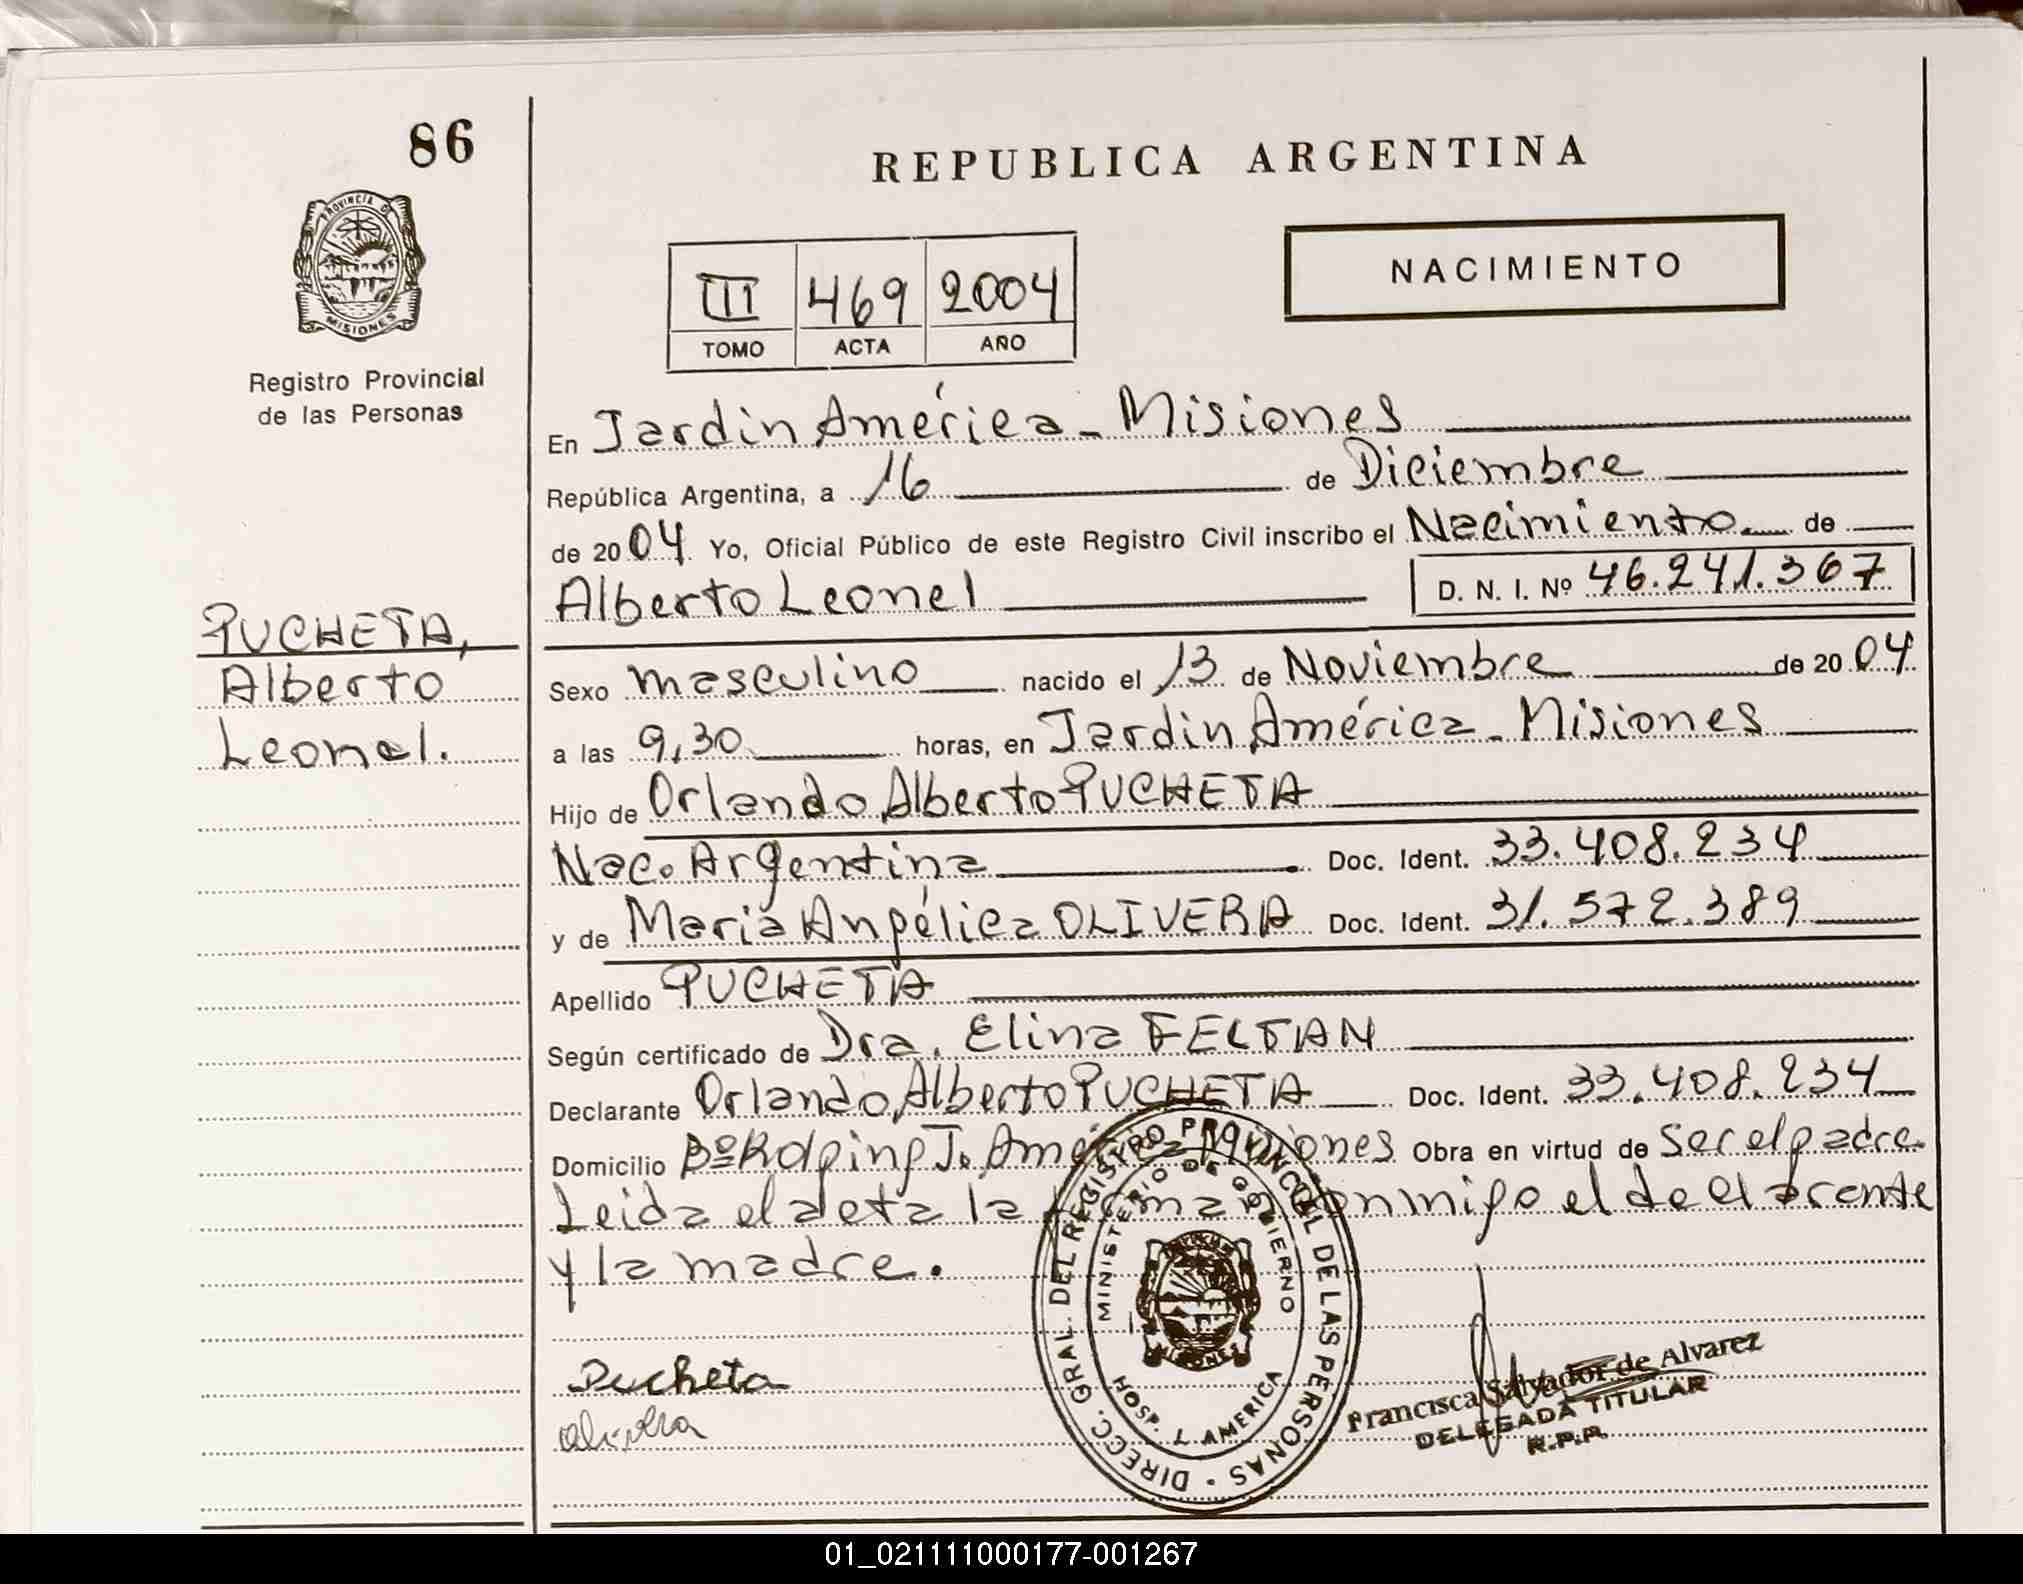 86
REPUBLICA ARGENTINA
PROVINCIA DE
MISIONES
Registro Provincial
de las Personas
NACIMIENTO
III 469 2004
TOMO ACTA AÑO
En Jardin América - Misiones
República Argentina, a 16 de Diciembre
de 2004 Yo, Oficial Público de este Registro Civil inscribo el Nacimiento de
Alberto Leonel D. N. I. Nº 46.241.367
PUCHETA,
Alberto
Leonel.
Sexo masculino nacido el 13 de Noviembre de 2004
a las 9,30 horas, en Jardin América - Misiones
Hijo de Orlando Alberto PUCHETA
Nac. Argentina Doc. Ident. 33.408.234
y de Maria Angélica OLIVERA Doc. Ident. 31.572.389
Apellido PUCHETA
Según certificado de Dra. Elina FELTAN
Declarante Orlando Alberto PUCHETA Doc. Ident. 33.408.234
Domicilio Bº J. América Misiones Obra en virtud de Ser el padre
Leida el acta la firman conmigo el declarante
y la madre.
DIRECC. GRAL. DEL REGISTRO PROVINCIAL DE LAS PERSONAS
MINISTERIO DE GOBIERNO
HOSP. J. AMERICA
Pucheta
Olivera
Francisca Salvador de Alvarez
DELEGADA TITULAR
R.P.P.
01_021111000177-001267